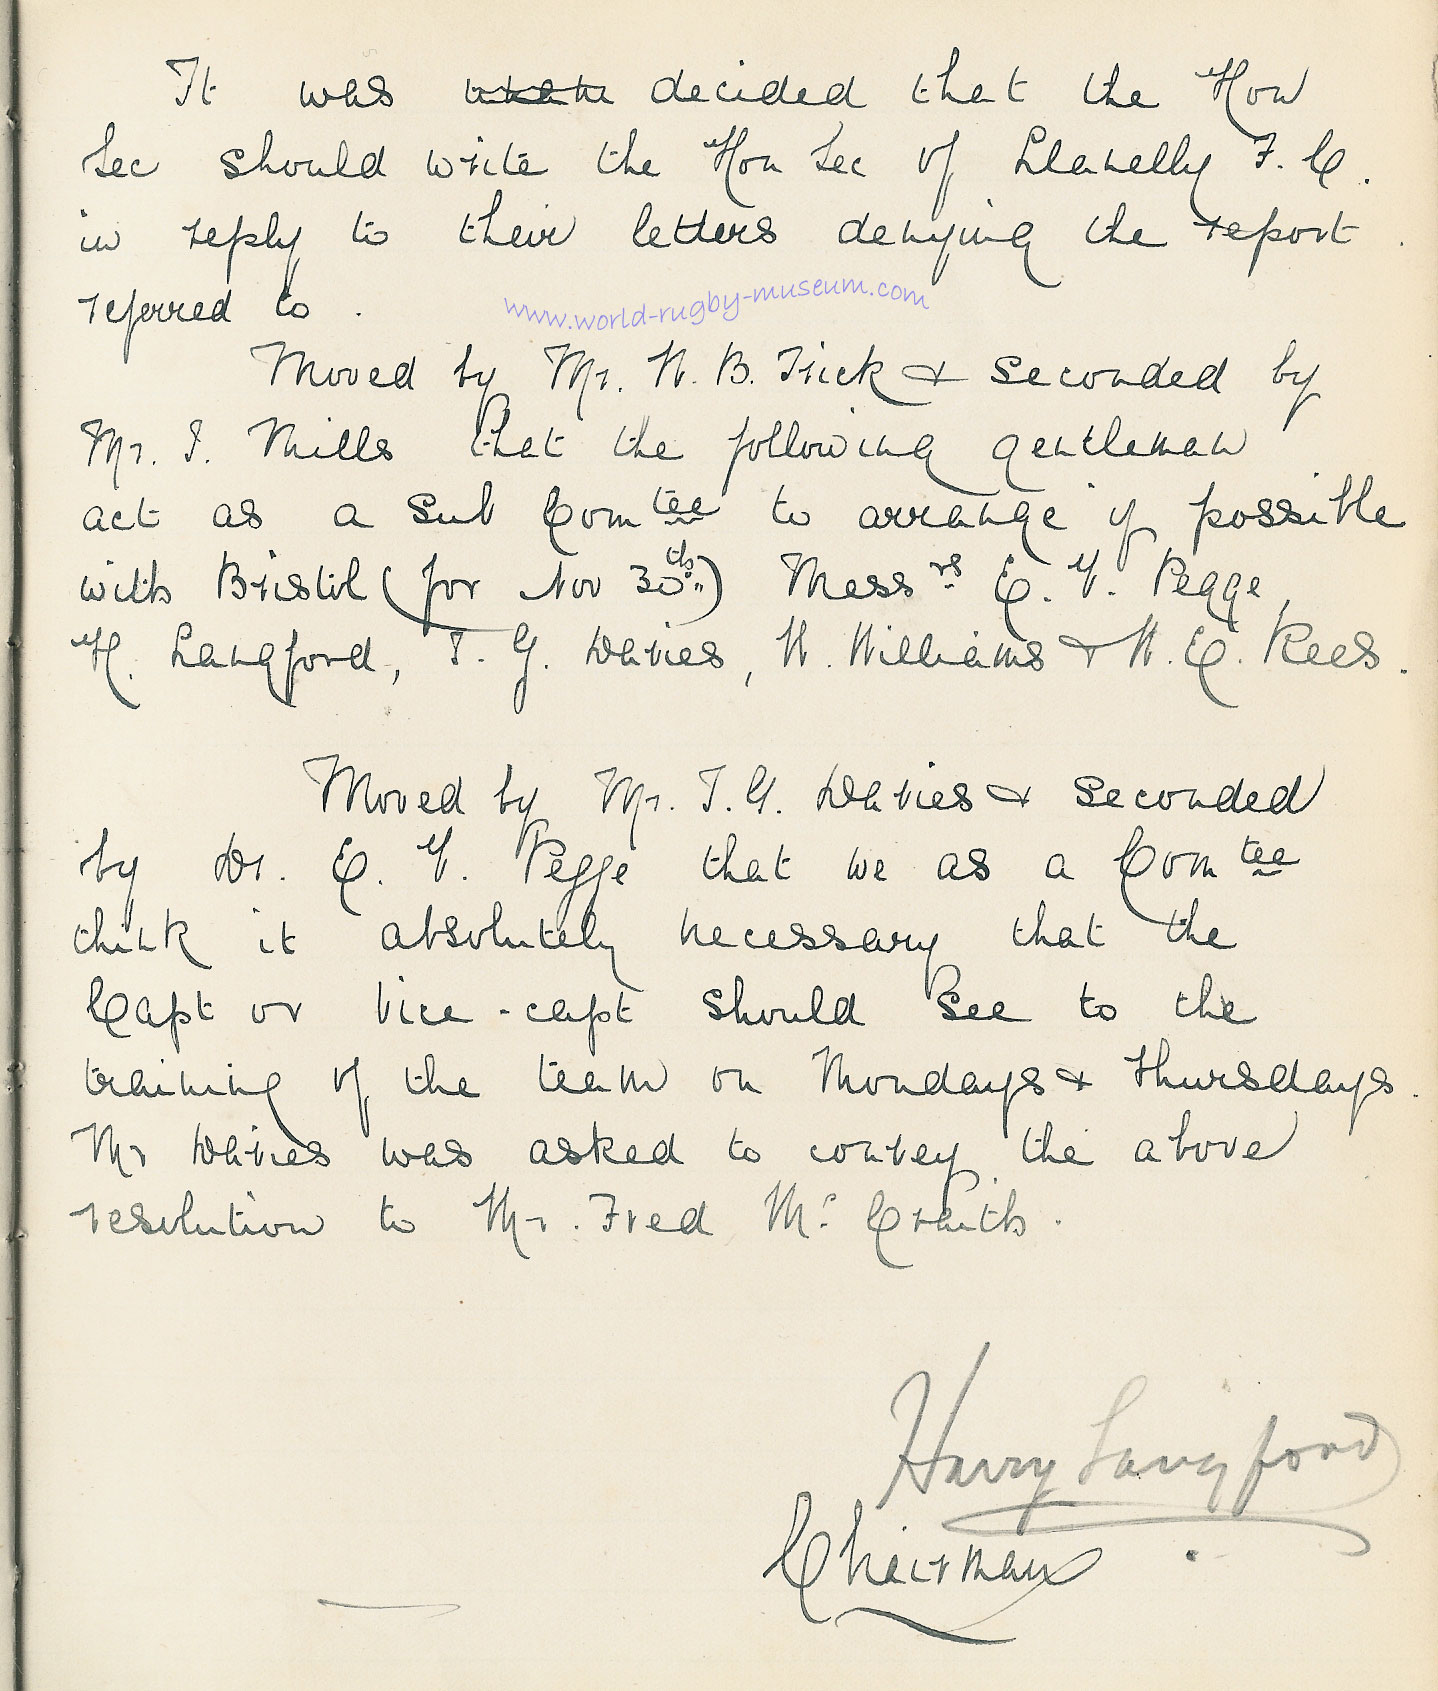 It was decided that the Hon
Sec should write the Hon Sec of Llanelly F. C.
in reply to their letters denying the report
referred to .
www.world-rugby-museum.com
Moved by Mr. W. B. Trick & seconded by
Mr. T. Mills that the following gentleman
act as a Sub Comtee to arrange if possible
with Bristol (for Nov 30th) Messrs E. V. Pegge,
H. Langford, T. G. Davies, W. Williams & W. E. Rees.
Moved by Mr. T. G. Davies & seconded
by Dr. E. V. Pegge that we as a Comtee
think it absolutely necessary that the
Capt or Vice-capt should see to the
training of the team on Mondays & Thursdays.
Mr Davies was asked to convey the above
resolution to Mr. Fred Mc Craith.
Harry Langford
Chairman